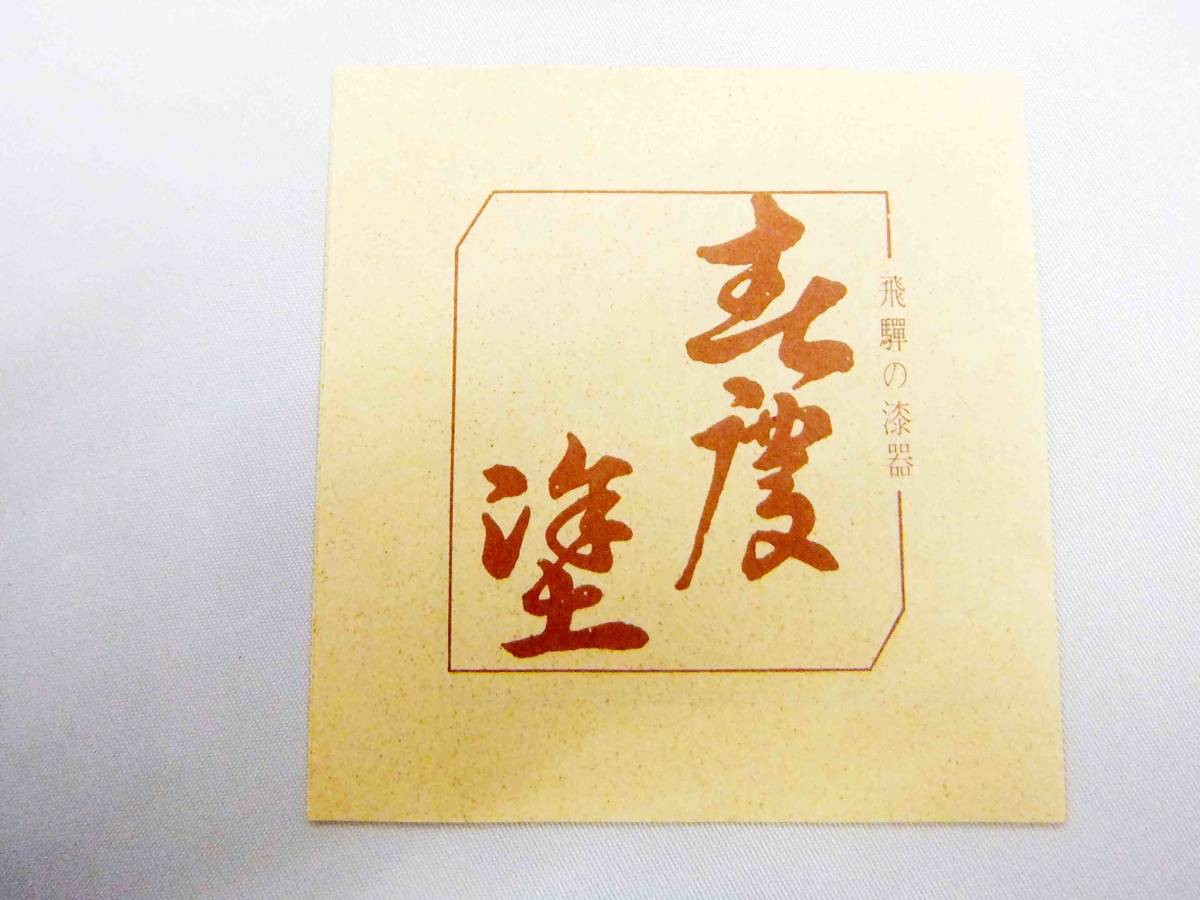 飛驒の漆器
春慶
塗